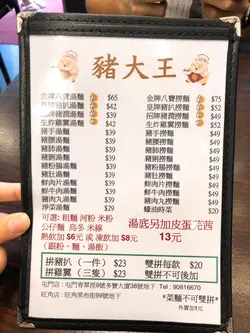 豬大王
金牌八寶湯麵 $65
皇牌豬扒湯麵 $42
招牌豬潤湯麵 $42
生炸雞翼湯麵 $42
豬手湯麵 $39
豬腰湯麵 $39
豬肚湯麵 $39
豬心湯麵 $39
豬脷湯麵 $39
豬腸湯麵 $39
豬紅湯麵 $39
鮮肉片湯麵 $39
鮮牛肉湯麵 $39
豬肉丸湯麵 $39
淨湯麵
金牌八寶撈麵 $75
皇牌豬扒撈麵 $52
招牌豬潤撈麵 $52
生炸雞翼撈麵 $52
豬手撈麵 $49
豬腰撈麵 $49
豬肚撈麵 $49
豬心撈麵 $49
豬脷撈麵 $49
豬腸撈麵 $49
豬紅撈麵 $49
鮮肉片撈麵 $49
鮮牛肉撈麵 $49
豬肉丸撈麵 $49
蠔油時菜 $20
可選: 粗麵 河粉 米粉
公仔麵 烏冬 米線
熱飲加 $6元 或 凍飲加 $8元
(跟粉、麵、湯飯)
湯底另加皮蛋芫茜
13元
拼豬扒 (一件) $23
拼雞翼 (三隻) $23
雙拼每款 $20
雙拼不可後加
屯門店: 屯門青翠徑9號多寶大廈36號地下 Tel : 90816670
旺角店: 旺角黑布街99號地下
*菜麵不可雙拼*
外賣加$